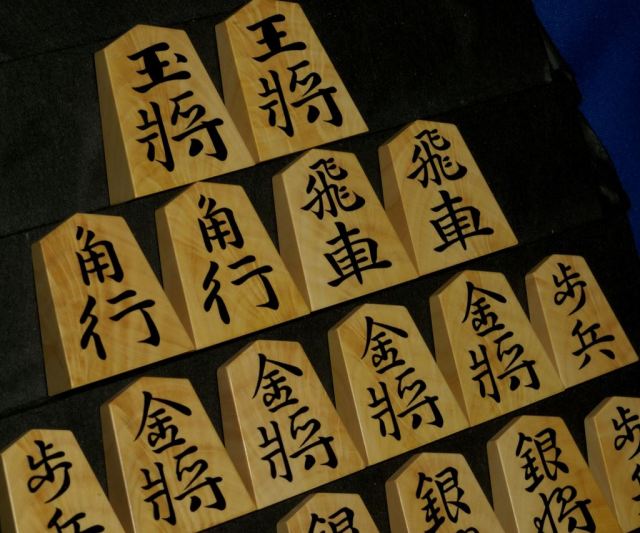 玉將
王將
角行
角行
飛車
飛車
金將
金將
金將
金將
歩兵
歩兵
銀
銀將
銀將
歩